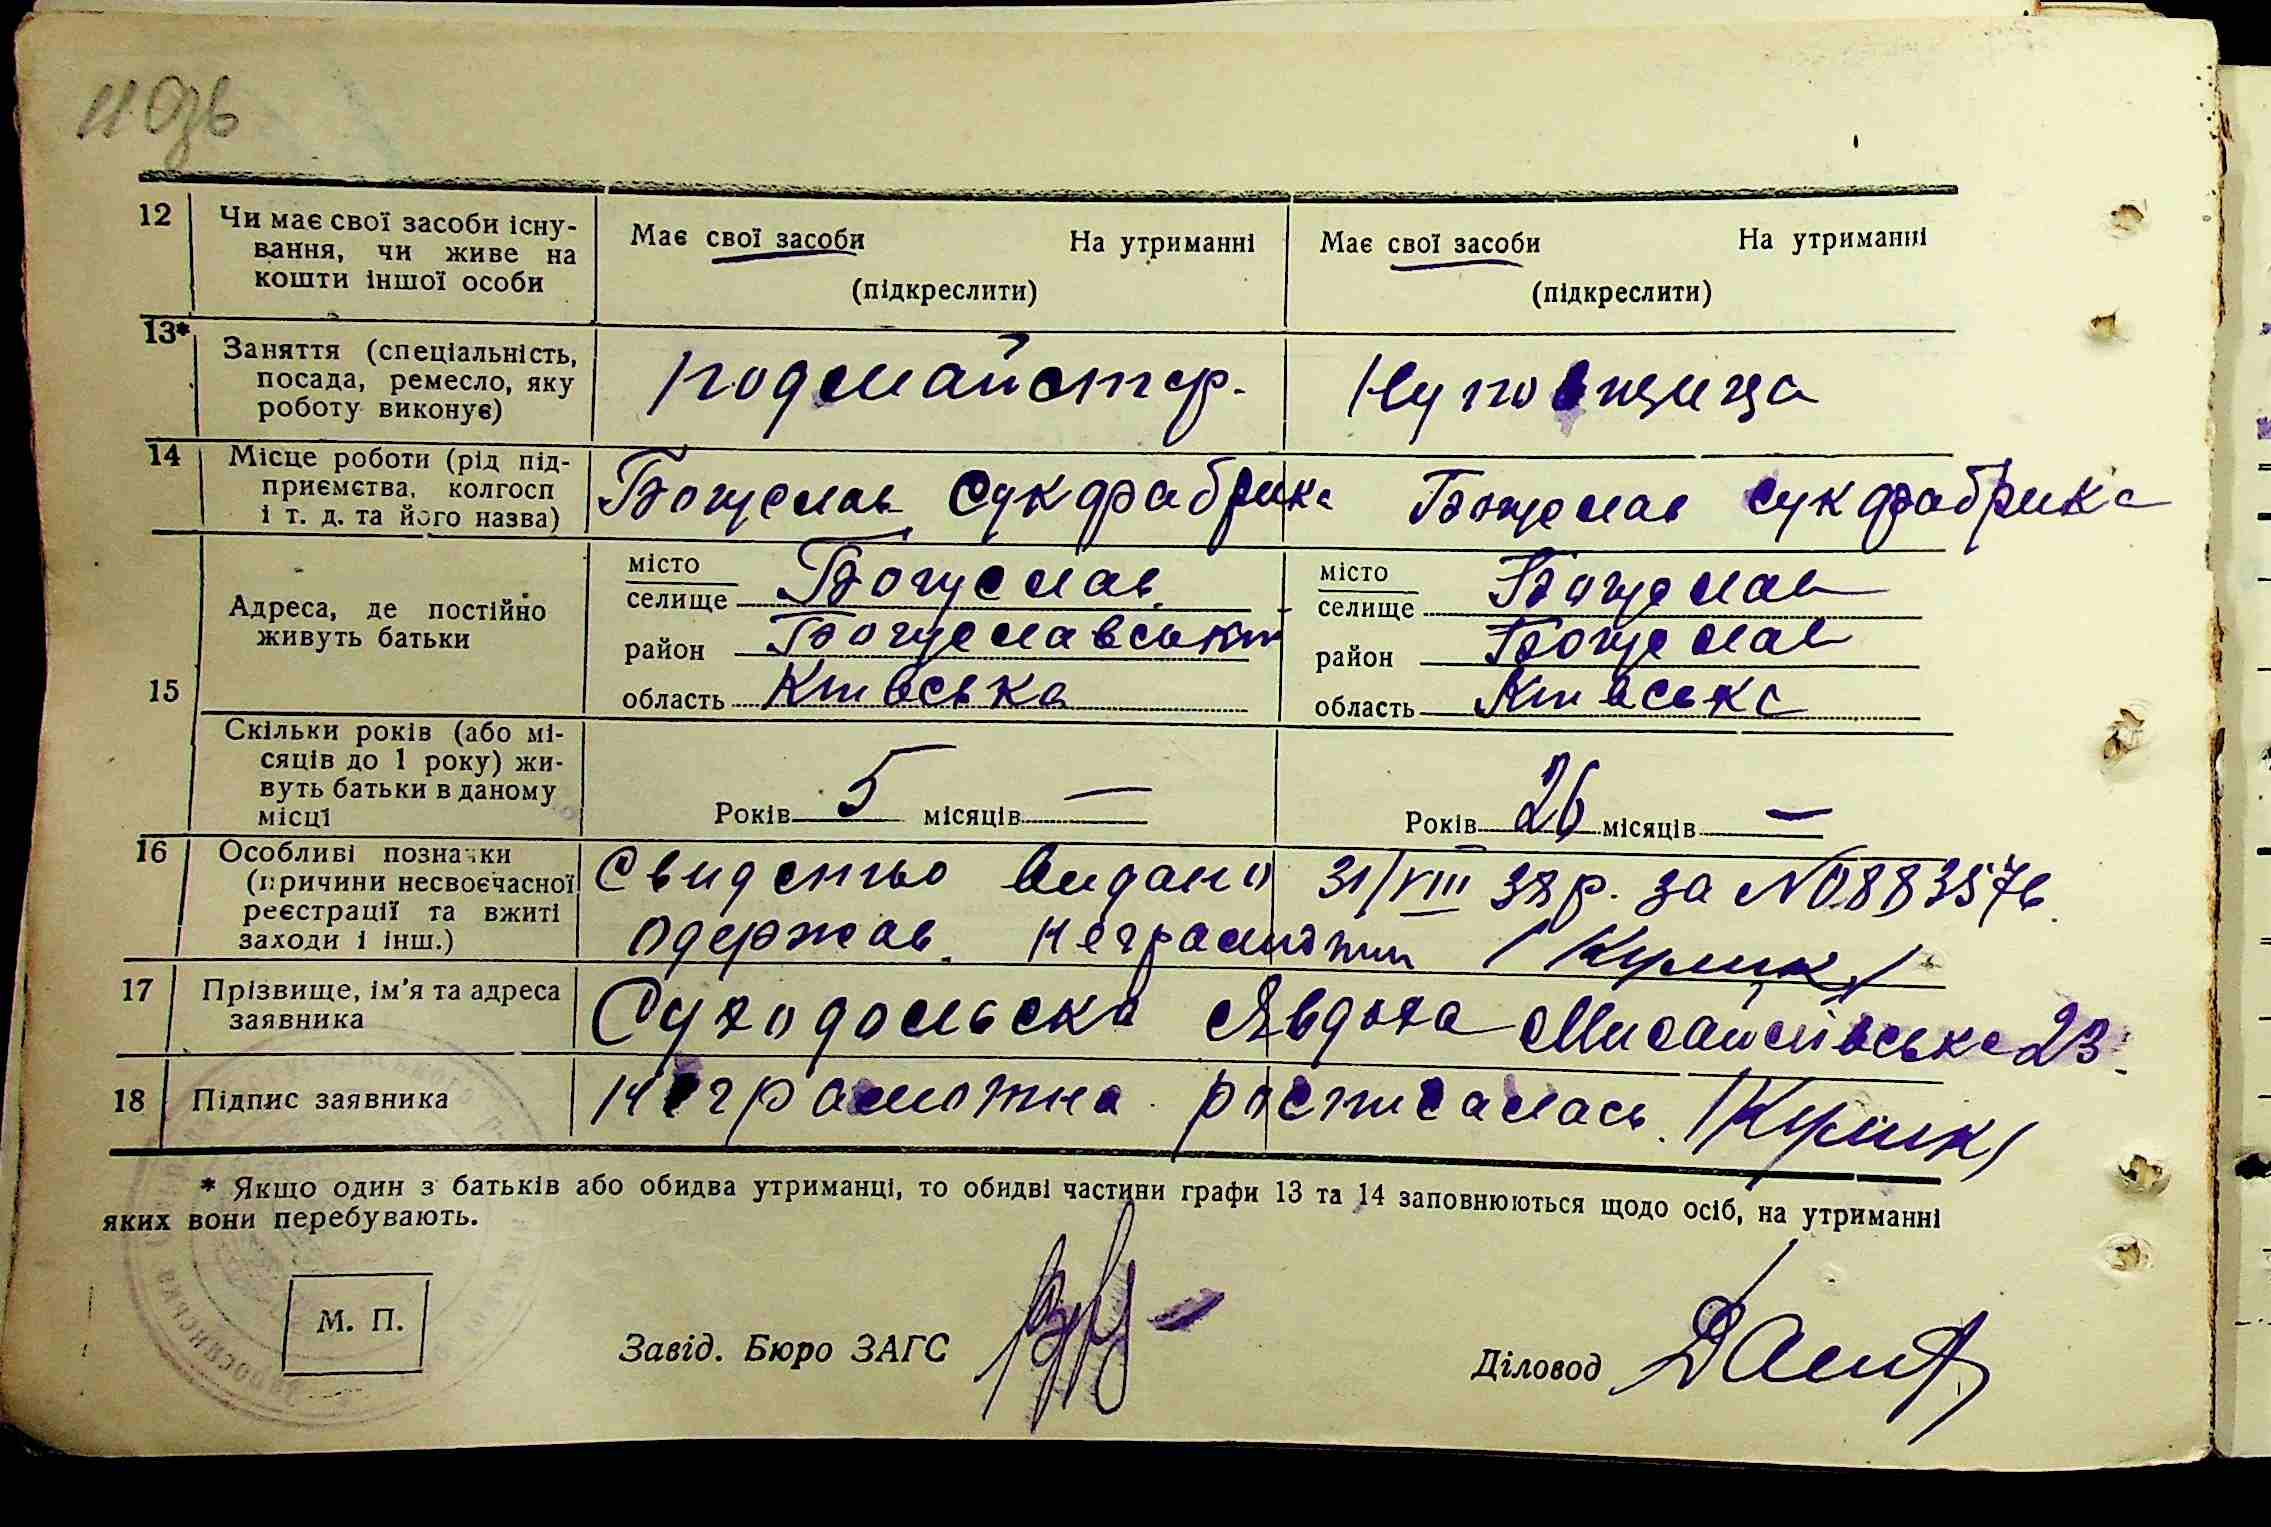 12 Чи має свої засоби існу-
вання, чи живе на
кошти іншої особи
Має свої засоби На утриманні
(підкреслити)
Має свої засоби На утриманні
(підкреслити)
13* Заняття (спеціальність,
посада, ремесло, яку
роботу виконує)
подмайстр.
14 Місце роботи (рід під-
приємства, колгосп
і т. д. та його назва)
Богуслав Сукфабрика
Богуслав сукфабрика
15 Адреса, де постійно
живуть батьки
місто
селище Богуслав
район Богуславськи
область Київська
місто
селище Богуслав
район Богуслав
область Київська
Скільки років (або мі-
сяців до 1 року) жи-
вуть батьки в даному
місці
Років 5 місяців —
Років 26 місяців —
16 Особливі познački
(причини несвоєчасної
реєстрації та вжиті
заходи і інш.)
Свидетьо видано 31/VIII 38 р. за №
одержав. неграмотни (Кулик)
17 Прізвище, ім'я та адреса
заявника
Суходольска Явдоха 23.
18 Підпис заявника
неграмотна росписалась. (Кулик)
* Якщо один з батьків або обидва утриманці, то обидві частини графи 13 та 14 заповнюються щодо осіб, на утриманні
яких вони перебувають.
М. П.
Завід. Бюро ЗАГС
Діловод